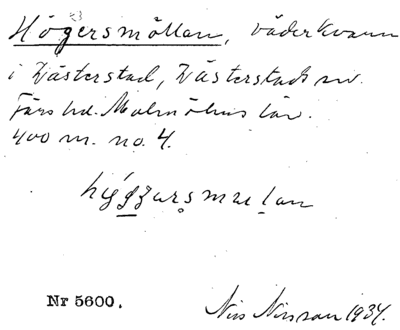 Högersmöllan, väderkvarn
i Västerstad, Västerstads sn.
Färs hd. Malmöhus län.
400 m. no. 4.
Nr 5600.
Nils Nilsson 1934.